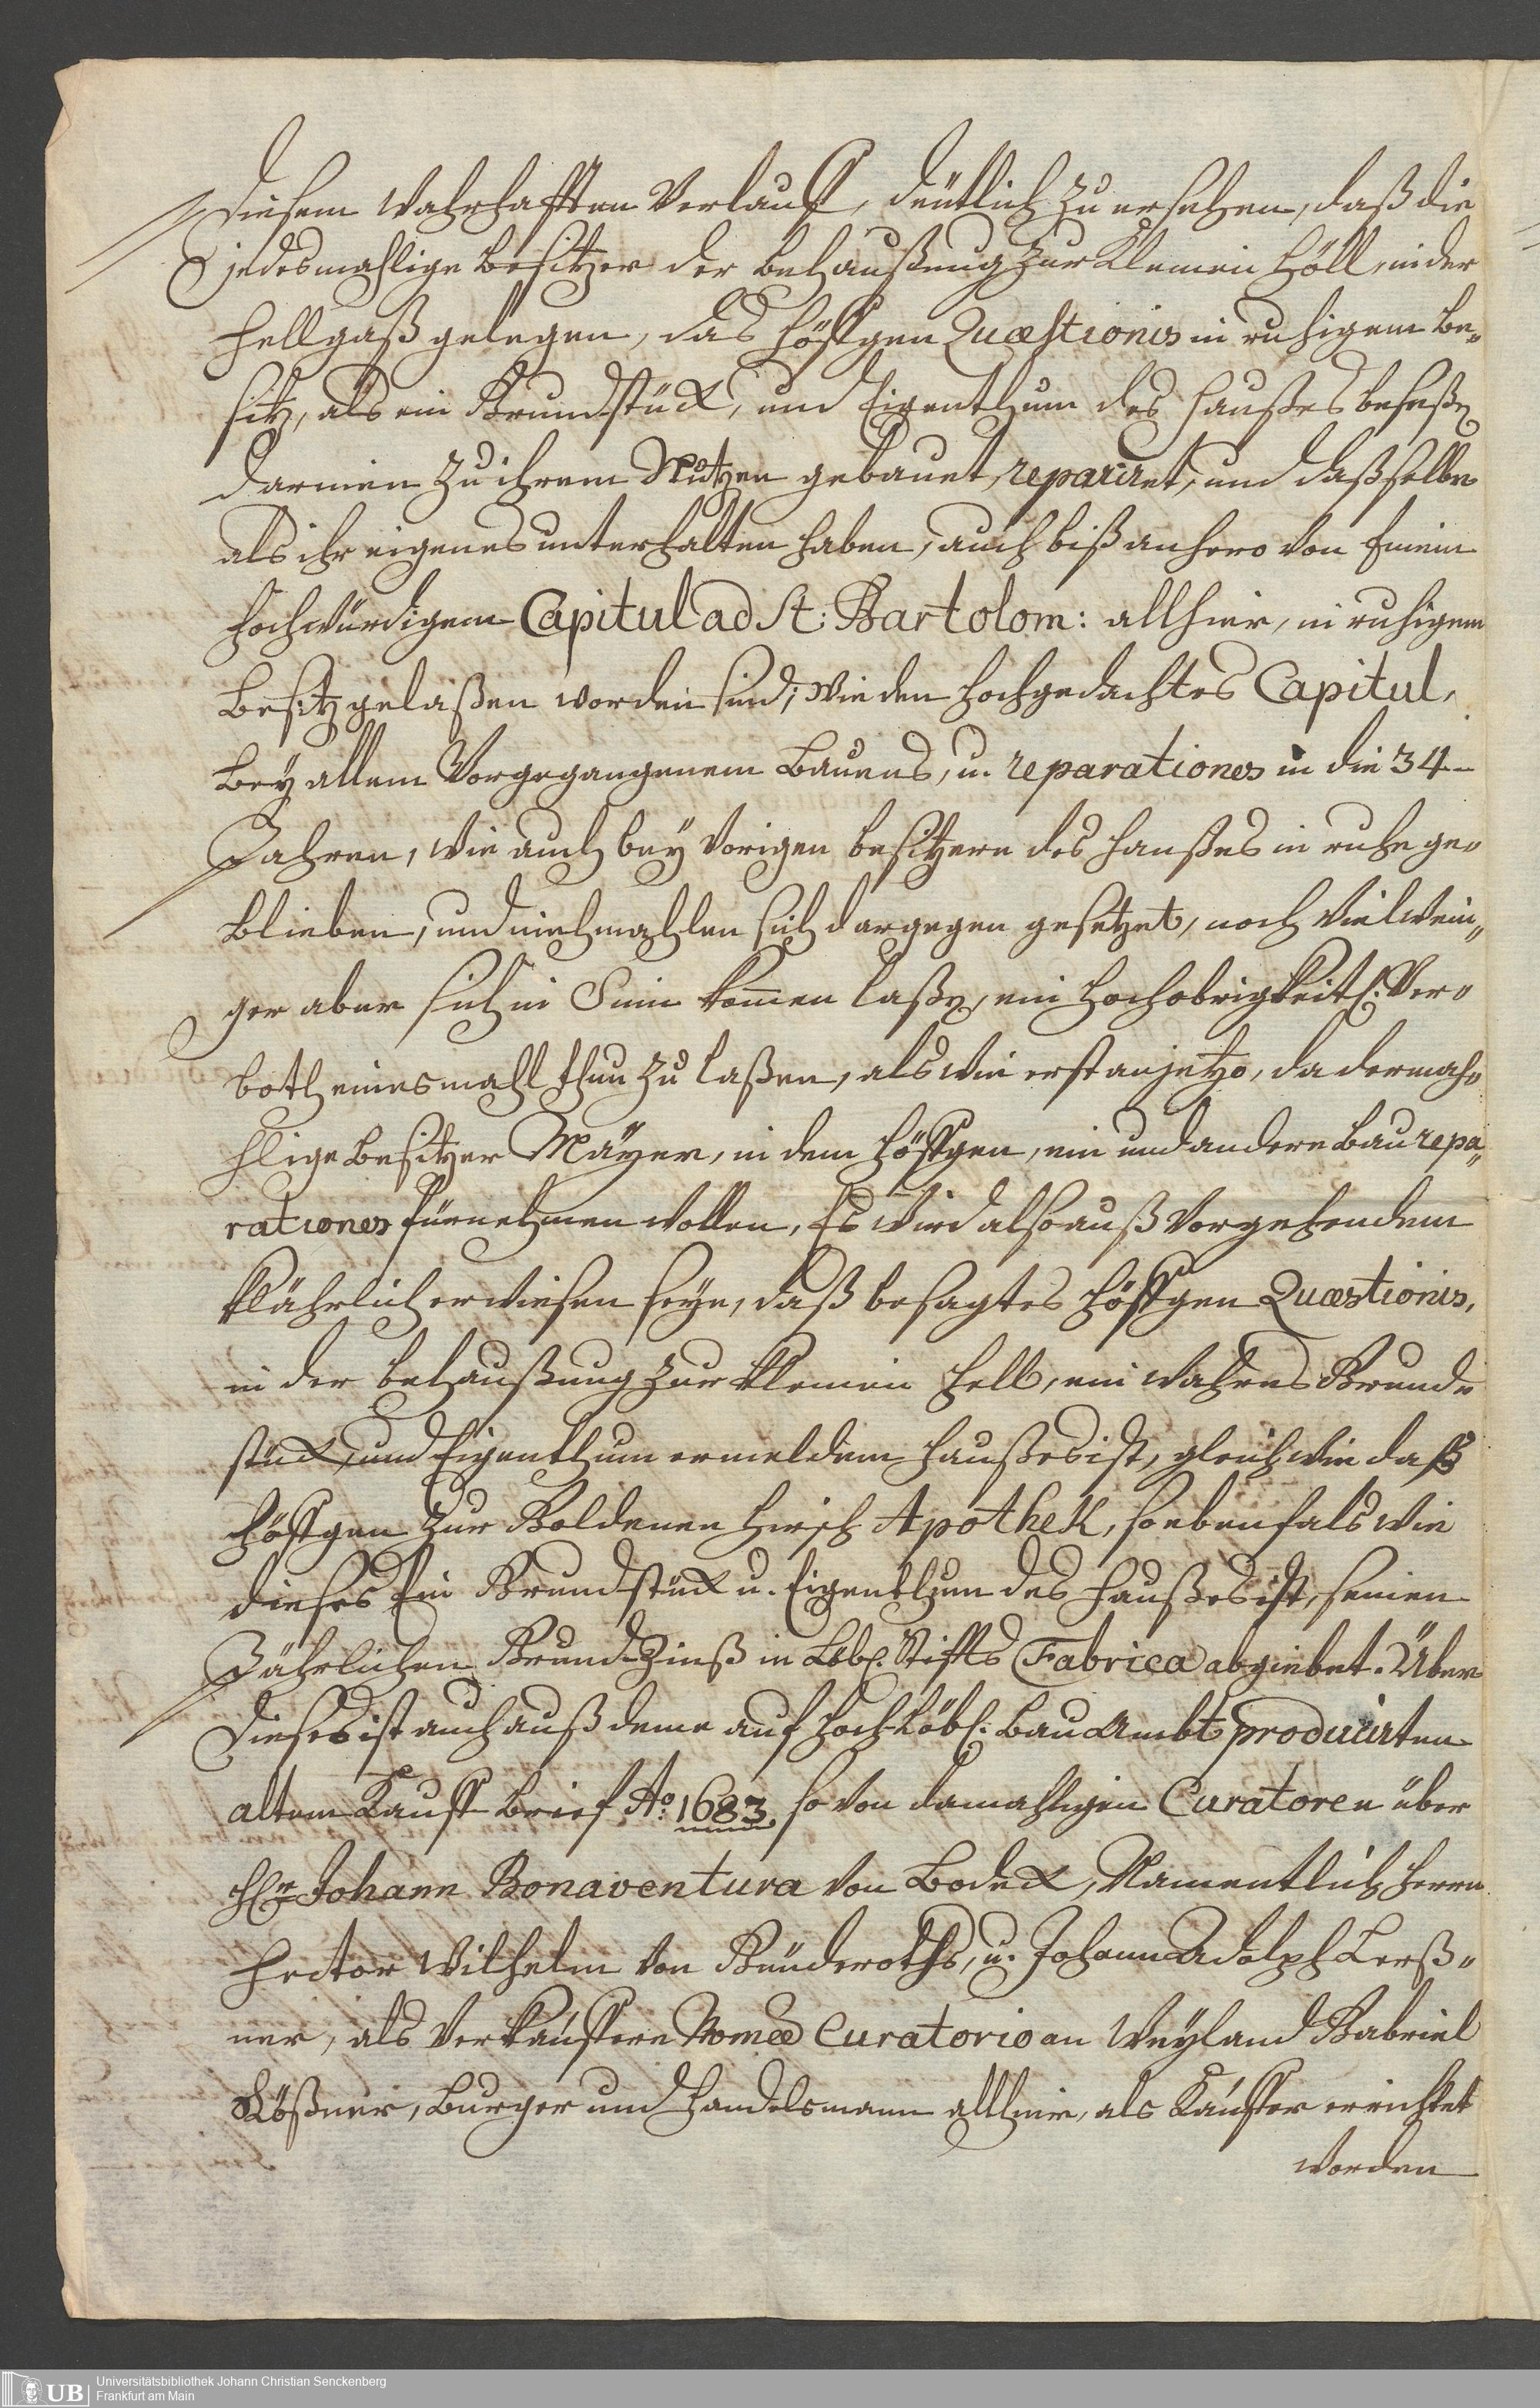 diesem wahrhafften Verlauff, deütlich zu ersehen, daß die
jedesmahlige Besitzer der Behaußung zur Kleinen Höll, in der
Hellgaß gelegen, das Höffgen Quæstionis in ruhigem Be-
sitz, als ein Grundstück, und Eigenthum des Haußes beseßen
darinnen zu ihrem Nutzen gebauet, repariret, und daßselbe
als ihr eigenes unterhalten haben, auch biß anhero von Einem
Hochwürdigem Capitul ad St: Bartolom: allhier, in ruhigem
Besitz gelaßen worden sind; wie den hochgedachtes Capitul,
bey allem Vorgegangenem Bauens, u. reparationes in die 34
Jahren, wie auch bey vorigen Besitzern des Haußes in ruhe ge-
blieben, und niehmahlen sich dargegen gesetzet, noch vielwein-
ger aber sich in Sinn kommen laßen, ein Hochobrigkeitl: Ver-
both einesmahl thun zu laßen, als wie erst anjetzo, da dermah-
hlige Besitzer Mäyer, in dem Höffgen, ein und andere Bau repa-
rationes fürnehmen wollen, Es wird also auß vorgehendem
klährlich erwiesen seyn, daß besagtes Höffgen Quæstionis,
in der Behaußung zur kleinen Hell, ein wahres Grund-
stück und Eigenthum ermeldem Haußes ist, gleich wie daß
Höffgen zur Goldenen Hirsch Apothek, so ebenfals wie
dieses Ein Grundstück u. Eigenthum des Haußes ist, seinen
Jährlichen Grund-Zinß in Löbl. Stiffts Fabrica abgiebet. Über
dieses ist auch auß deme auf Hoch-Löbl: Bau Ambt producirten
altem Kauff Brief Ao: 1683 so von damahligen Curatoren über
Hln Johann Bonaventura von Bodeck, Namentlich Herrn
Hector Wilhelm von Günderoths, u. Johann Adolph Lerß-
ner, als Verkäuffern Nomee Curatorio an Weyland Gabriel
Rößner, Burger und Handelsmann allhier, als Käuffer errichtet
worden
Universitätsbibliothek Johann Christian Senckenberg
Frankfurt am Main
UB